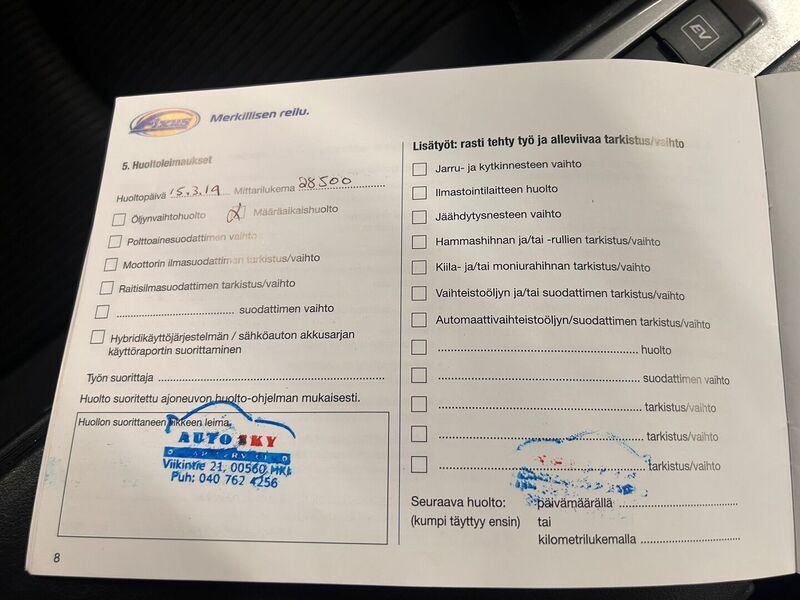 EV
Fixus
Merkillisen reilu.
5. Huoltoleimaukset
Huoltopäivä 15.3.19 Mittarilukema 28500
Öljynvaihtohuolto Määräaikaishuolto
Polttoainesuodattimen vaihto
Moottorin ilmasuodattimen tarkistus/vaihto
Raitisilmasuodattimen tarkistus/vaihto
suodattimen vaihto
Hybridikäyttöjärjestelmän / sähköauton akkusarjan
käyttöraportin suorittaminen
Työn suorittaja
Huolto suoritettu ajoneuvon huolto-ohjelman mukaisesti.
Huollon suorittaneen liikkeen leima.
AUTO SKY
Viikintie 21, 00560 HKI
Puh: 040 762 4256
8
Lisätyöt: rasti tehty työ ja alleviivaa tarkistus/vaihto
Jarru- ja kytkinnesteen vaihto
Ilmastointilaitteen huolto
Jäähdytysnesteen vaihto
Hammashihnan ja/tai -rullien tarkistus/vaihto
Kiila- ja/tai moniurahihnan tarkistus/vaihto
Vaihteistoöljyn ja/tai suodattimen tarkistus/vaihto
Automaattivaihteistoöljyn/suodattimen tarkistus/vaihto
huolto
suodattimen vaihto
tarkistus/vaihto
tarkistus/vaihto
tarkistus/vaihto
Seuraava huolto: päivämäärällä
(kumpi täyttyy ensin) tai
kilometrilukemalla